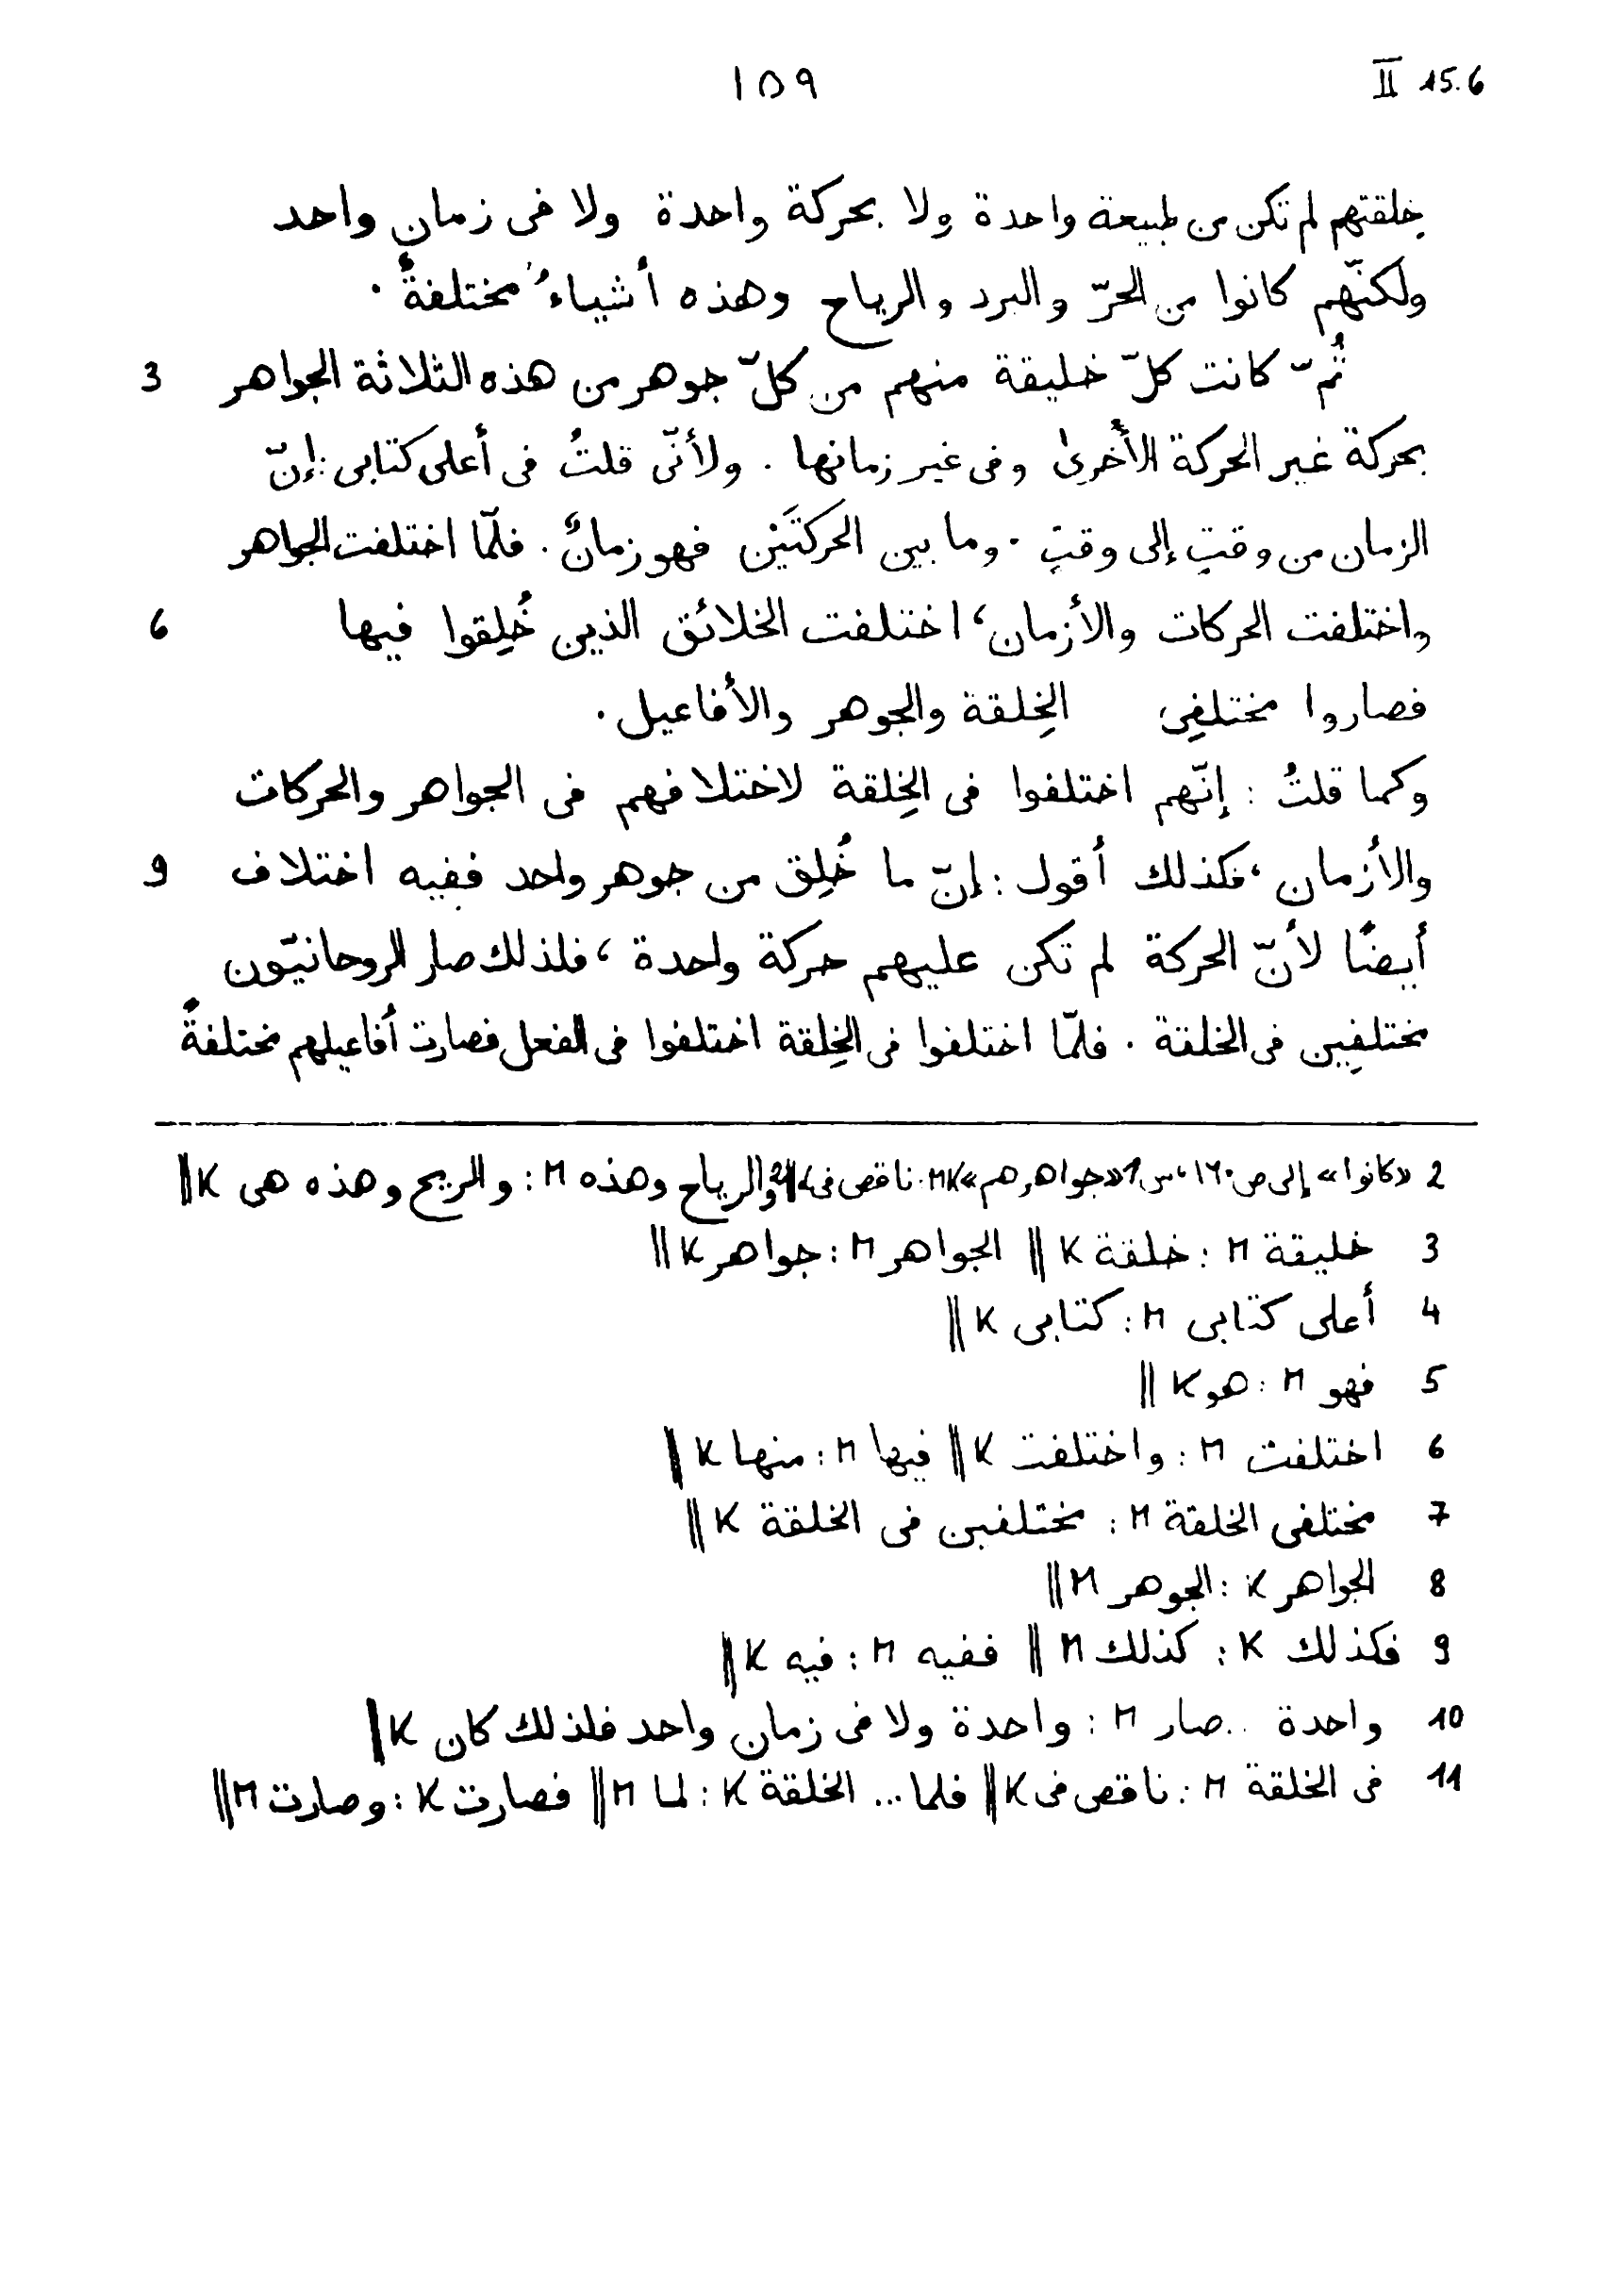 ١٥٩ II 15.6
خِلقتهم لم تكن من طبيعة واحدة ولا بحركة واحدة ولا فى زمانٍ واحد
ولكنّهم كانوا من الحرّ والبرد والرياح وهذه أشياءُ مختلفةٌ.
3 ثُمّ كانت كلّ خليقة منهم من كلّ جوهر من هذه الثلاثة الجواهر
بحركة غير الحركة الأُخرىٰ وفى غير زمانها. ولأنّى قلتُ فى أعلى كتابى: إنّ
الزمان من وقتٍ إلى وقتٍ. وما بين الحركتَيْن فهو زمانٌ. فلمّا اختلفت الجواهر
6 واختلفت الحركات والأزمان، اختلفت الخلائق الذين خُلِقوا فيها
فصاروا مختلفِى الخِلقة والجوهر والأفاعيل.
وكما قلتُ: إنّهم اختلفوا فى الخِلقة لاختلافهم فى الجواهر والحركات
9 والأزمان، فكذلك أقول: إنّ ما خُلِق من جوهر واحد ففيه اختلاف
أيضًا لأنّ الحركة لم تكن عليهم حركة واحدة، فلذلك صار الروحانيّون
مختلفِين فى الخلقة. فلمّا اختلفوا فى الخِلقة اختلفوا فى الفعل فصارت أفاعيلهم مختلفةً
2 «كانوا» إلى ص ١٦٠، س 1 «جواهرهم» MK: ناقص فى || والرياح وهذه M: والريح وهذه هى K ||
3 خليقة M: خلقة K || الجواهر M: جواهر K ||
4 أعلى كتابى M: كتابى K ||
5 فهو M: هو K ||
6 اختلفت M: واختلفت K || فيها M: منها K ||
7 مختلفى الخلقة M: مختلفين فى الخلقة K ||
8 الجواهر K: الجوهر M ||
9 فكذلك K: كذلك M || ففيه M: فيه K ||
10 واحدة .. صار M: واحدة ولا فى زمان واحد فلذلك كان K ||
11 فى الخلقة M: ناقص فى K || فلما... الخلقة K: لما M || فصارت K: وصارت M ||